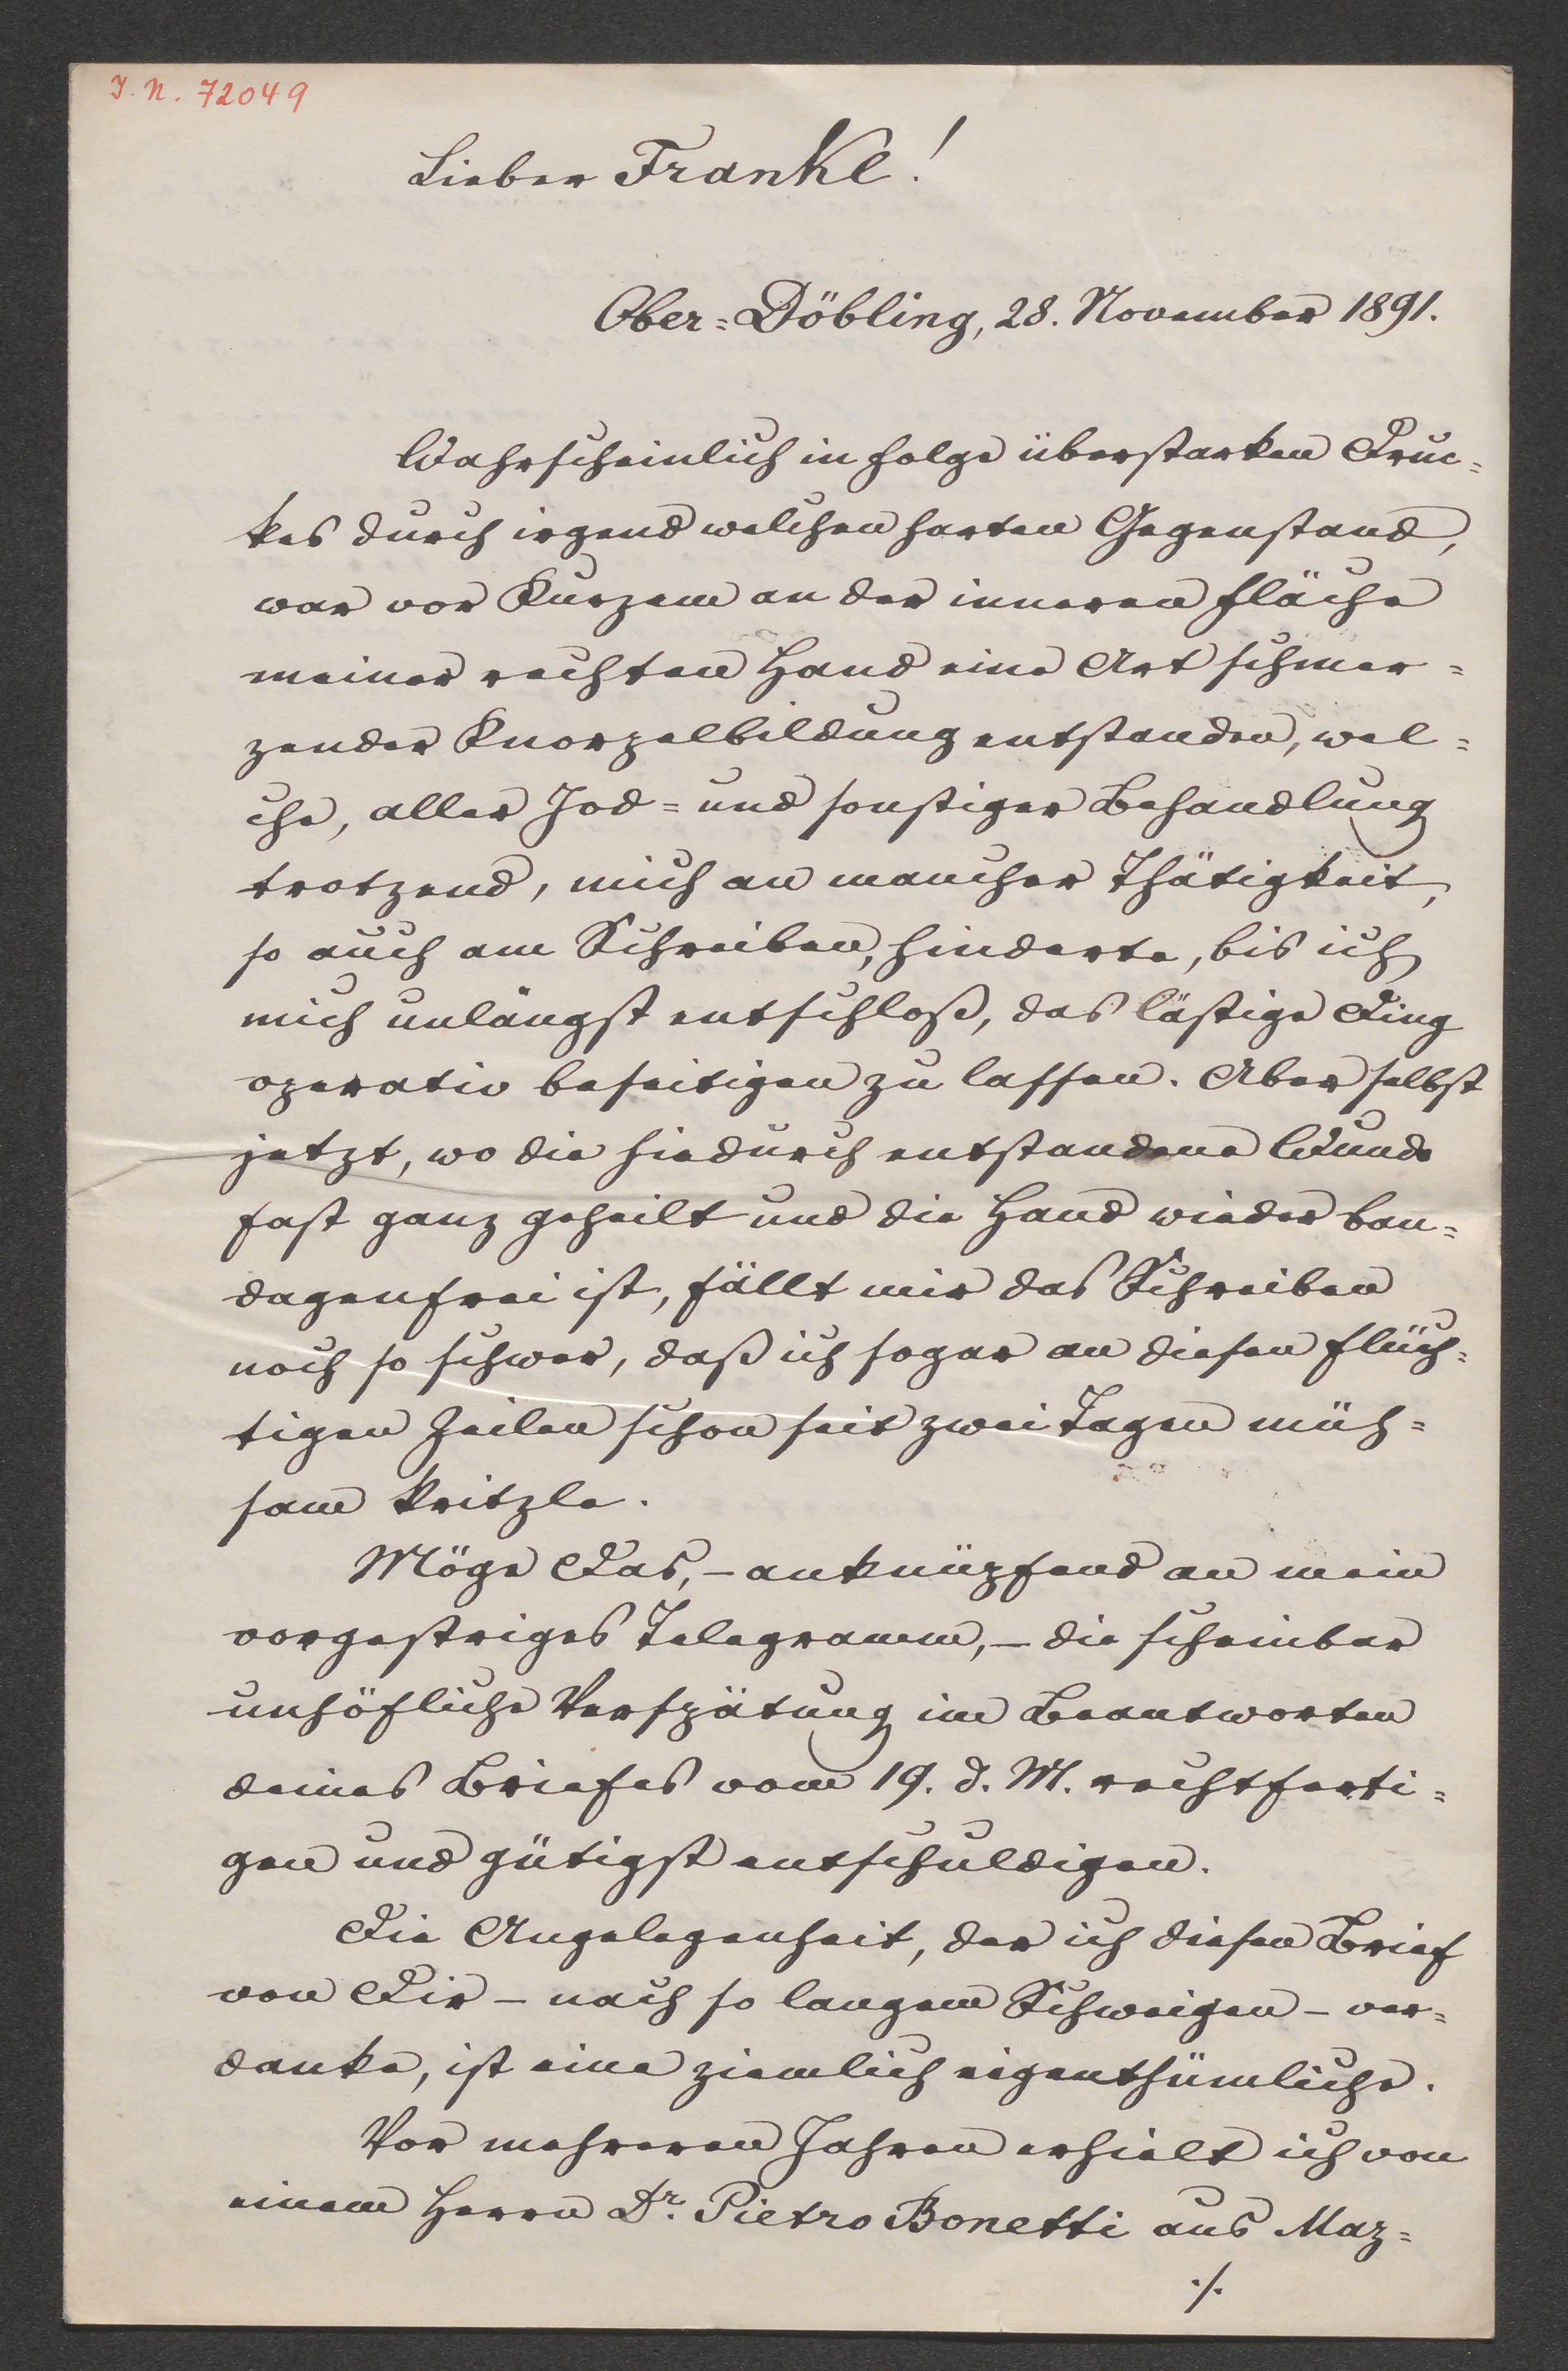 I. N. 72049
Lieber Frankl!
Ober=Döbling, 28. November 1891.
Wahrscheinlich in Folge überstarken Druc=
kes durch irgend welchen harten Gegenstand,
war vor Kurzem an der inneren Fläche
meiner rechten Hand eine Art schmer=
zender Knorpelbildung entstanden, wel=
che, aller Jod= und sonstiger Behandlung
trotzend, mich an mancher Thätigkeit,
so auch am Schreiben, hinderte, bis ich
mich unlängst entschloß, das lästige Ding
operativ beseitigen zu lassen. Aber selbst
jetzt, wo die hiedurch entstandene Wunde
fast ganz geheilt und die Hand wieder ban=
dagenfrei ist, fällt mir das Schreiben
noch so schwer, daß ich sogar an diesen flüch=
tigen Zeilen schon seit zwei Tagen müh=
sam kritzle.
Möge Das, – anknüpfend an mein
vorgestriges Telegramm, – die scheinbar
unhöfliche Verspätung im Beantworten
deines Briefes vom 19. d. M. rechtferti=
gen und gütigst entschuldigen.
Die Angelegenheit, der ich diesen Brief
von Dir – nach so langem Schweigen – ver=
danke, ist eine ziemlich eigenthümliche.
Vor mehreren Jahren erhielt ich von
einem Herrn Dr. Pietro Bonetti aus Maz=
./.